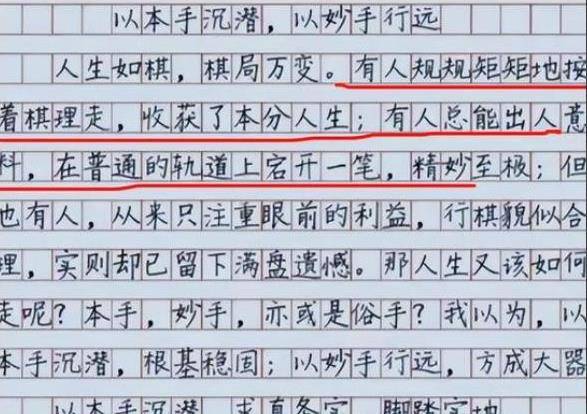 以本手沉潜，以妙手行远
人生如棋，棋局万变。有人规规矩矩地按
着棋理走，收获了本分人生；有人总能出人意
料，在普通的轨道上宕开一笔，精妙至极；但
也有人，从来只注重眼前的利益，行棋貌似合
理，实则却已留下满盘遗憾。那人生又该如何
走呢？本手，妙手，亦或是俗手？我以为，以
本手沉潜，根基稳固；以妙手行远，方成大器
以本手沉潜，求真务实，脚踏实地